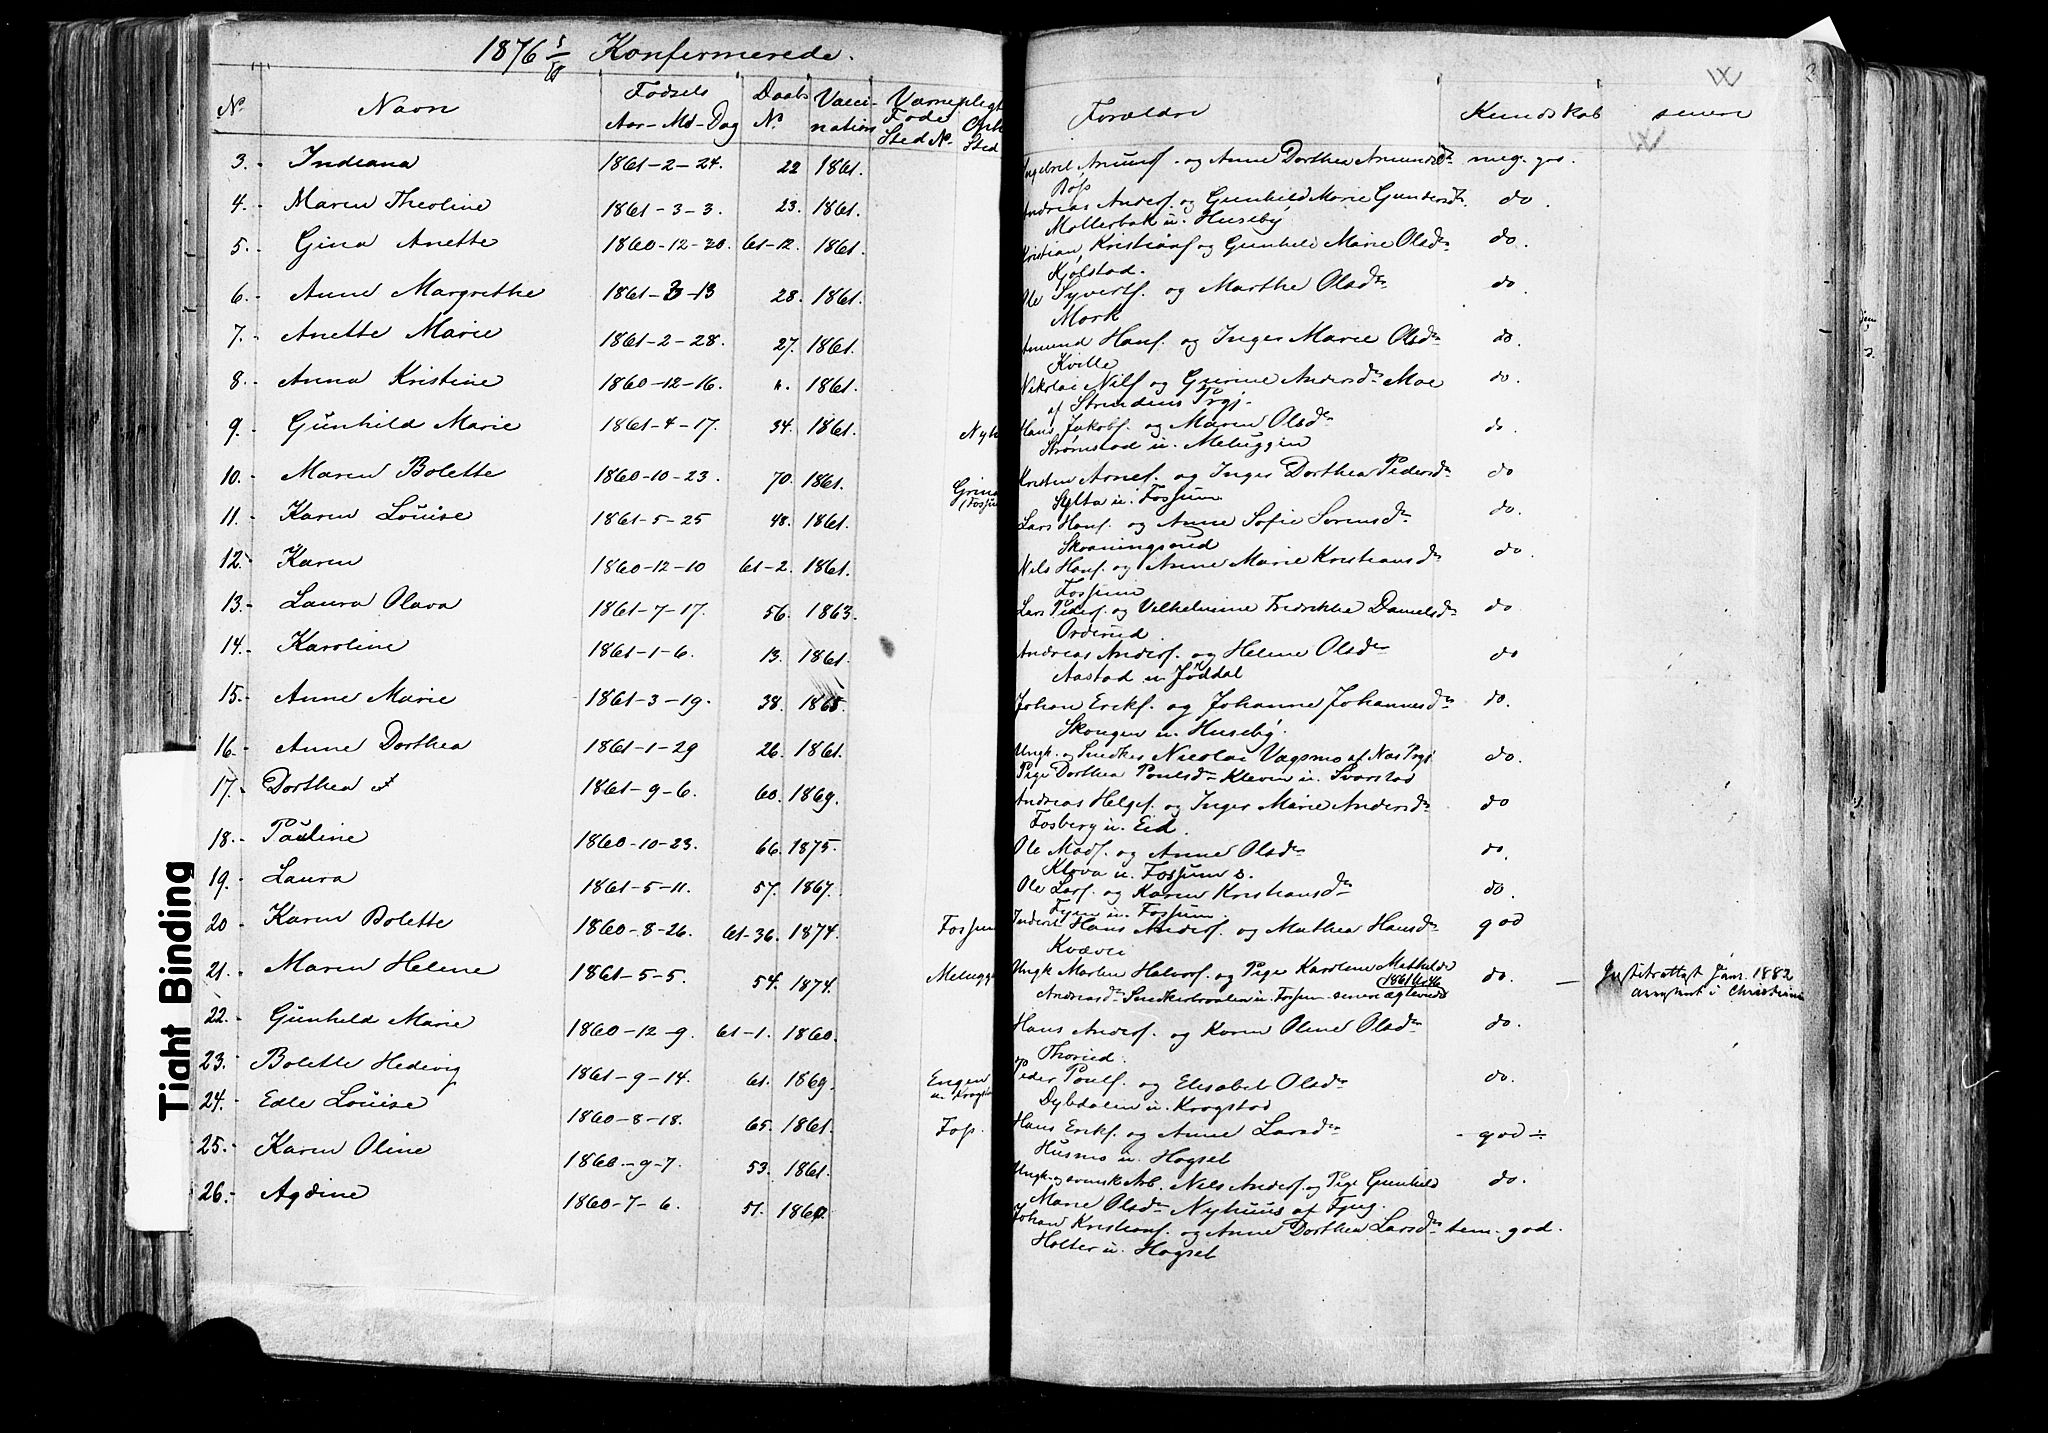 1876 Konfirmerede.
No. Navn Fødsels Aar-Md-Dag Daabs No. Vacci-nation Værnepligt Føde Sted No. Forældre Kundskab senere
3. Indiana 1861-2-24. 22 1861. Amunds. og Anne Dorthea Amundsdr meg. god.
4. Maren Theoline 1861-3-3. 23. 1861. Andreas Anders. og Gunhild Marie Gundersdr. do.
Møllerbak u. Huseby
5. Gina Anette 1860-12-20. 61-12. 1861. Kristian Kristians og Gunhild Marie Olsdr do.
Kjølstad.
6. Anne Margrethe 1861-3-13 28. 1861. Ole Syverts. og Marthe Olsdr do
Mork
7. Anette Marie 1861-2-28. 27. 1861. Amund Hans. og Inger Marie Olsdr do.
Kville
8. Anna Kristine 1860-12-16. 1861. Nikolai Nils og Gurine Andersdr Moe do.
af Strindens Prgj.
9. Gunhild Marie 1861-4-17. 34. 1861. Nyh Hans Jakobs. og Maren Olsdr do.
Strømstad u. Meluggen
10. Maren Bolette 1860-10-23. 70. 1861. Kristen Arnes. og Inger Dorthea Pedersdr do
Sylta u. Fossum
11. Karen Louise 1861-5-25 48. 1861. Lars Hans. og Anne Sofie Sorensdr do.
Skraaningsrud
12. Karen 1860-12-10 61-2. 1861. Nils Hans. og Anne Marie Kristiansdr do.
Fossum
13. Laura Olava 1861-7-17. 56. 1863. Lars Peders. og Vilhelmine Fredrikke Danielsdr do
Orderud.
14. Karoline 1861-1-6. 13. 1861. Andreas Anders. og Helene Olsdr do
Aastad u. Jøddal
15. Anne Marie 1861-3-19. 38. 1865. Johan Eriks. og Johanne Johannesdr do.
Skougen u. Huseby.
16. Anne Dorthea 1861-1-29 26. 1861. Ungk. og Snedker Nicolai Vagsmo af Nas Prgj do.
Pige Dorthea Poulsdr Kleven u. Svarstad
17. Dorthea 1861-9-6. 60. 1869. Andreas Helges. og Inger Marie Andersdr do
Fosberg u. Eid.
18. Pauline 1860-10-23. 66. 1875. Ole Mads. og Anne Olsdr do.
Klova u. Fossum s.
19. Laura 1861-5-11. 57. 1867. Ole Lars. og Karen Kristiansdr do.
u. Fossum.
20 Karen Bolette 1860-8-26. 61-36. 1874. Fossum Inderst Hans Anders. og Mathea Hansdr god
Kvævei
21. Maren Helene 1861-5-5. 54. 1874. Melugge Ungk Marten Halvors. og Pige Karolene Mathilde do. Jan. 1882
Andreasdr u. Fossum senere ægteviede i Christiania
22. Gunhild Marie 1860-12-9. 61-1. 1860. Hans Anders. og Karen Oline Olsdr do.
Thorud.
23. Bolette Hedevig 1861-9-14. 61. 1869. Engen Peder Pouls. og Elisabet Olsdr do.
Dybdalen u. Krogstad
24. Edle Louise 1860-8-18. 65. 1861. Foss. Hans Eriks. og Anne Larsdr - god -
Husmo u. Hogset
25. Karen Oline 1860-9-7. 53. 1861. Ungk. og svensk Arb. Nils Anders. og Pige Gunhild do.
Marie Olsdr Nyhuus af
26. Agdine 1860-7-6. 51. 1860. Johan Kristians. og Anne Dorthea Larsdr tem. god.
Holter u. Hogset
Tight Binding